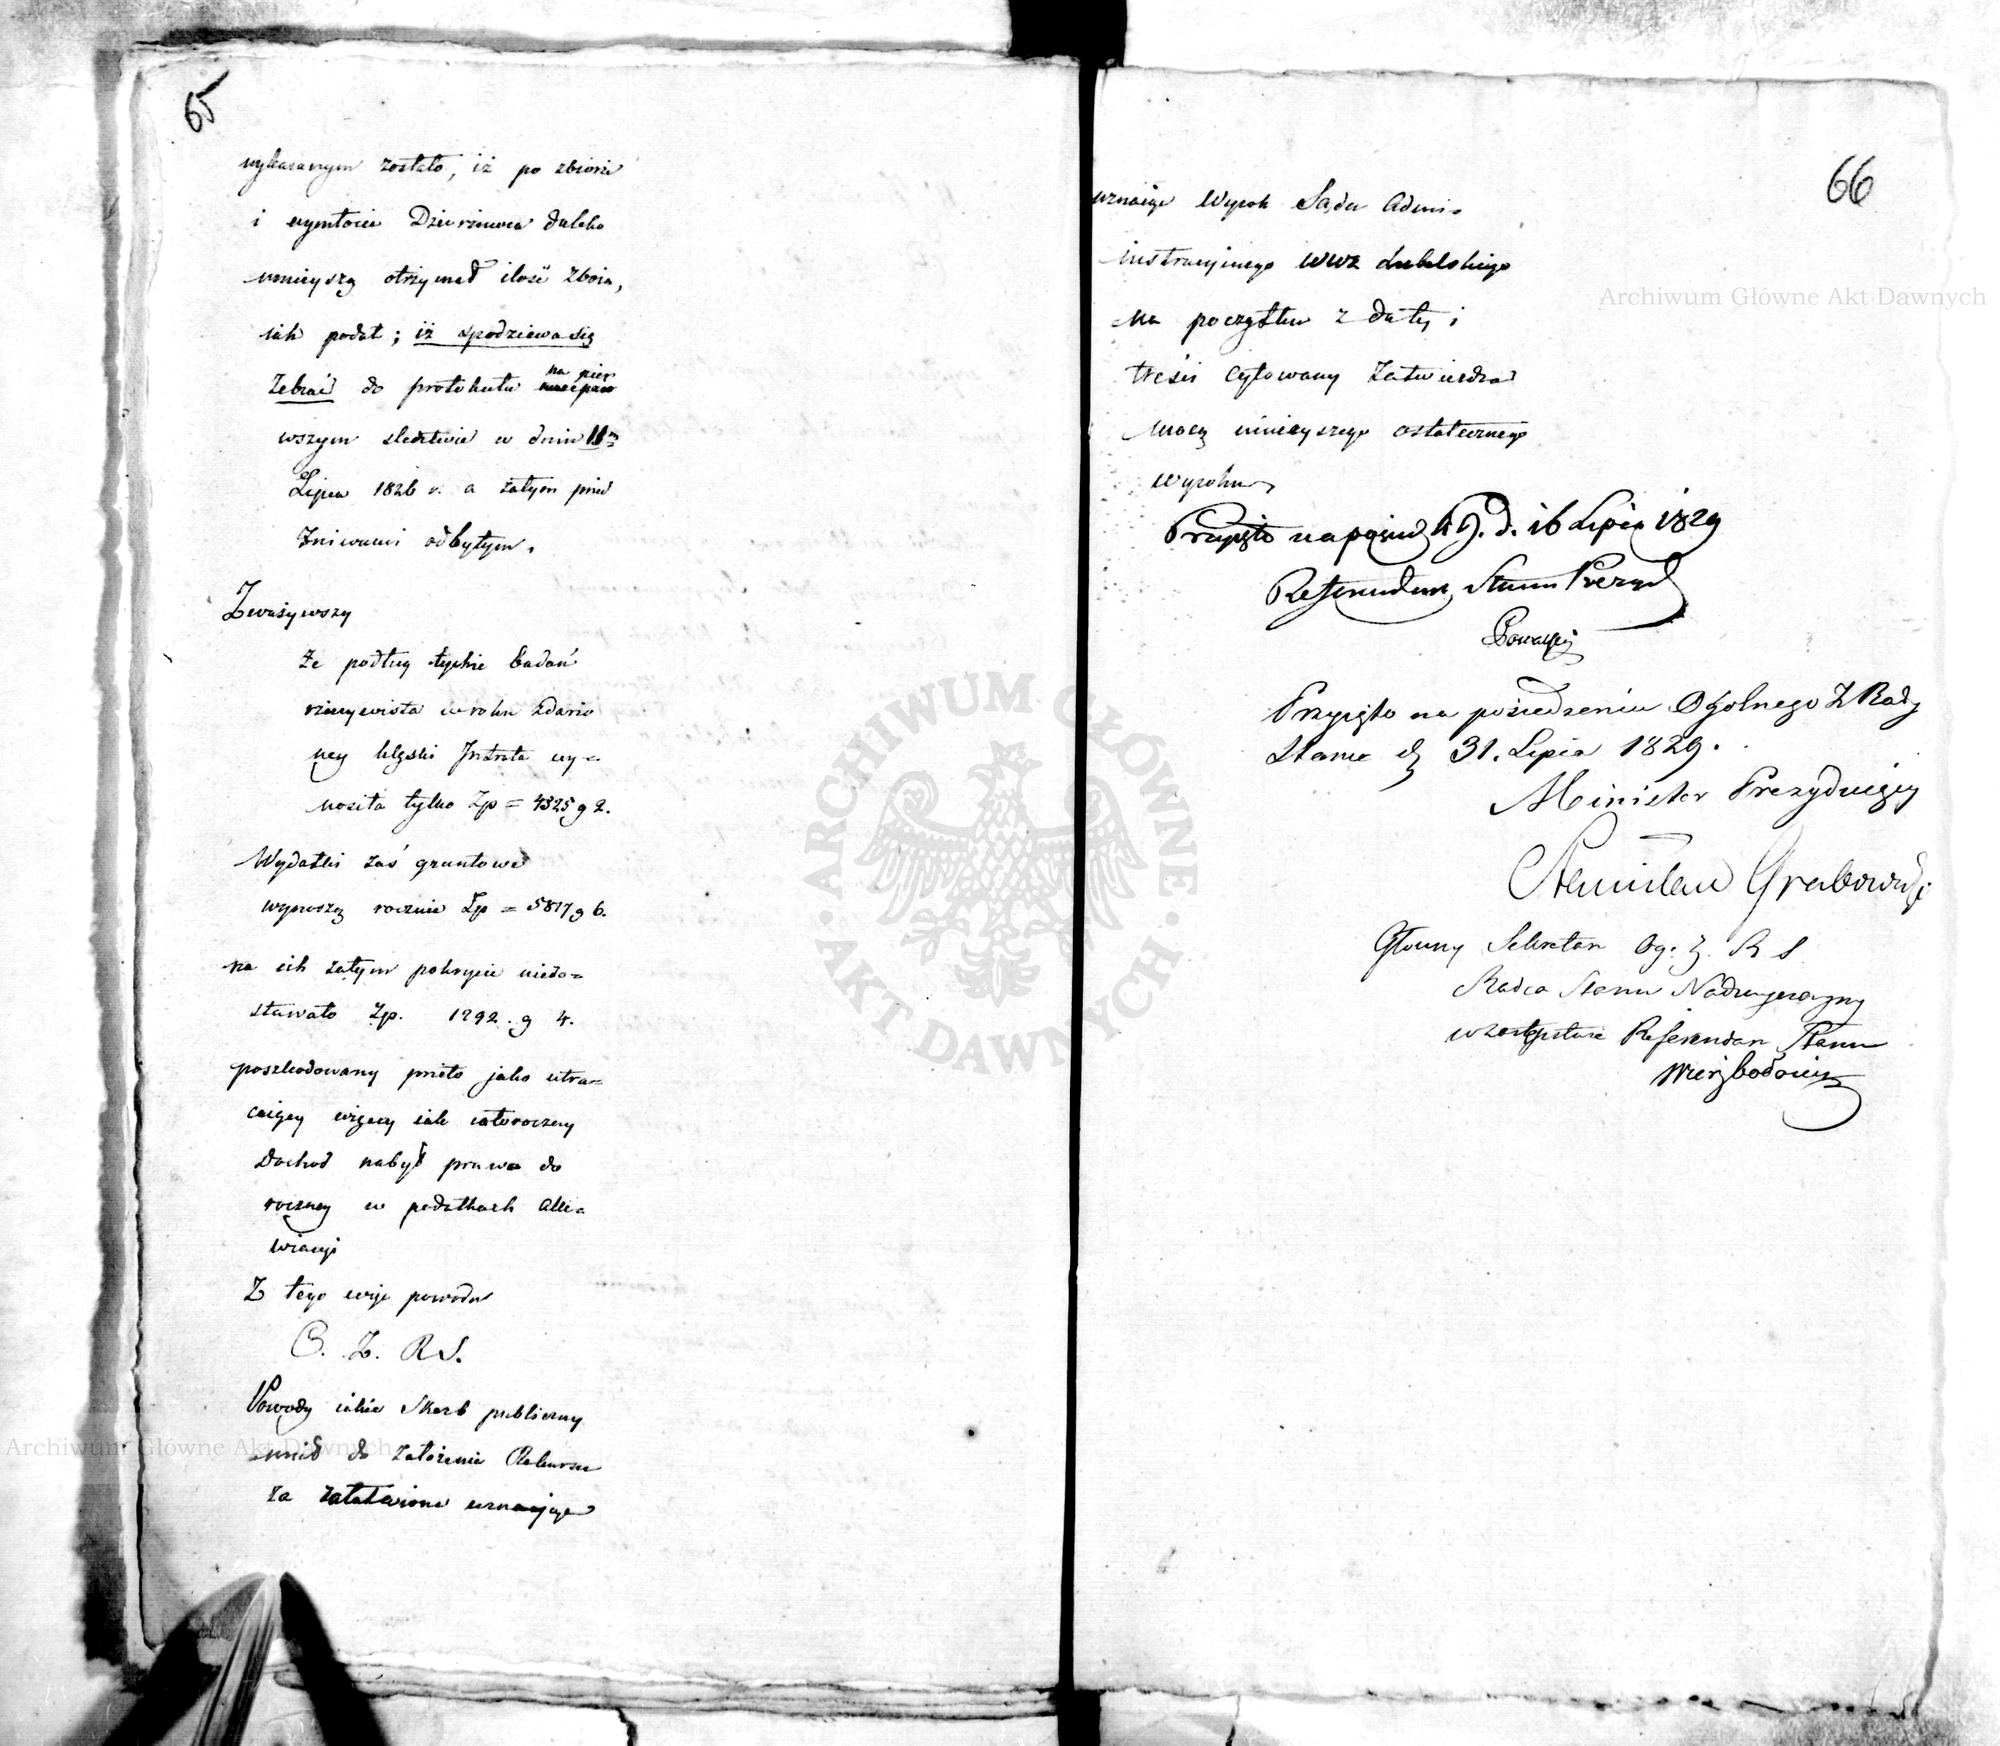 65
wykazanym zostało, iż po zbiorze
i wymłocie Dzierżawca daleko
mnieyszą otrzymał ilość zboia,
iak podał; iż spodziewa się
zebrać do protokułu na pier
wszym śledztwie w dniu 11
Lipca 1826 r. a zatym przed
żniwami odbytym.
Zważywszy
że podług tychże badań
rzeczywista w roku zdarzo
ney klęski Intrata wy=
nosiła tylko Zp = 4325 g 2.
Wydatki zaś gruntowe
wynoszą rocznie Zp = 5817 g 6.
na ich zatym pokrycie niedo=
stawało Zp. 1292. g 4.
poszkodowany przeto jako utra=
caiący więcey iak całoroczny
Dochod nabył prawo do
roczney w podatkach Alle=
wiacyi
Z tego więc powodu
O. Z. R S.
Powody iakie Skarb publiczny
miał do założenia Rekursu
za załatwione uznaiące
66
uznaiąc Wyrok Sądu Admi=
nistracyinego Wwa Lubelskiego
na początku z daty i
treści cytowany zatwierdza
mocą ninieyszego ostatecznego
wyroku
Przyięto na posied d. 16 Lipca 1829
Referendarz Stanu Prezyd
Przyięto na posiedzeniu Ogolnego Z Rady
Stanu d 31. Lipca 1829.
Minister Prezyduiący
Stanisław Grabowski
Głowny Sekretarz Og. Z. R S
Radca Stanu Nadzwyczayny
w zastępstwie Referendarz Stanu
Wierzbołowicz
Archiwum Główne Akt Dawnych
ARCHIWUM GŁÓWNE · AKT DAWNYCH ·
Archiwum Główne Akt Dawnych